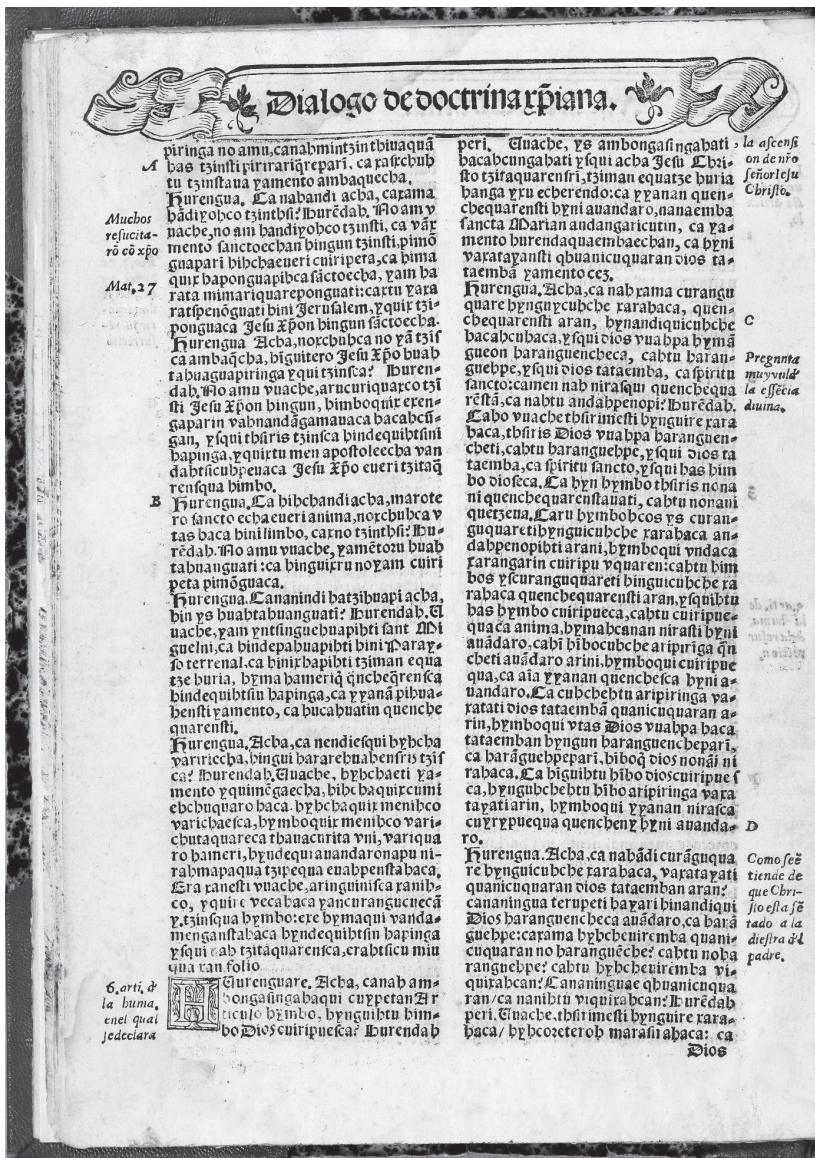 Dialogo de doctrina xp̃iana.
piringa no amu, canahmintzin thiuaquã
A
has tzinsti pirirariq̃reparî, ca xaschuh
tu tzinstaua yamento ambaquecha.
Hurengua. Ca nahandi acha, caxama
hãdiyohco tzinthsi? Hurẽdah. No am v
uache, no am handiyohco tzinsti, ca vãx
mento sanctoechan hingun tzinsti, pimõ
guapari hihchaeueri cuiripera, ca hima
quix haponguapihca sãctoecha, yam ha
rata mimariquareponguati: caxtu yaxa
ratspenõguati bini Jerusalem, yquix tzi-
ponguaca Jesu Xp̃on hingun sãctoecha.
Muchos
resucita-
rõ cõ xp̃o
Mat. 27
Hurengua Acha, noxchuhca no yã tzis
ca ambaq̃cha, higuitero Jesu Xp̃o huah
tahuaguapiringa yqui tzinsca? Huren-
dah. No amu vuache, arucuriquaxco tzi
sti Jesu Xp̃on hingun, himboquix exen-
gaparin vahnandãgamauaca hacahcũ-
gan, ysqui thsiris tzinsca hindequihtsini
hapinga, yquixtu men apostoleecha van
dahtsicuhpeuaca Jesu Xp̃o eueri tzitaq̃
rensqua himbo.
B
Hurengua. Ca hihchandi acha, marote
ro sancto echa eueri anima, noxchuhca v
tas haca bini limbo, caxno tzinthsi? Hu-
rẽdah. No amu vuache, yamẽtoxu huah
tahuanguati: ca hinguixru noyam cuiri
peta pimõguaca.
Hurengua. Cananindi hatzihuapi acha,
hin ys huahtahuanguati? Hurendah. V
uache, yam yntsinguehuapihti sant Mi
guelni, ca hindepahuapihti bini Paray-
so terrenal, ca hinixhapihti tziman equa
tze huria, hyma hameriq̃ q̃ncheq̃rensca
hindequihtsin hapinga, ca yyanã pihua-
hensti yamento, ca hucahuatin quenche
quarensti.
Hurengua. Acha, ca nendiesqui hyhcha
variricha, hingui hararehuahensris tzis
ca? Hurendah. Vuache, hyhchaeti ya-
mento yquimẽgaecha, hihchaquixcumi
ehchuquaro haca. hyhchaquix menihco
varichaesca, hymboquix menihco vari-
chutaquareca thauacurita vni, variqua
ro hameri, hyndequi auandaronapu ni-
rahmapaqua tzipequa euahpenstahaca.
Era xanesti vuache, aringuinisca xanih-
co, yquire vecahaca yancurangucuecã
y. tzinsqua hymbo: exe hymaqui vanda-
menganstahaca hyndequihtsin hapinga
ysqui nah tzitãquarensca, erahtsicu miu
qua xan folio
6. arti. đ
la huma.
enel qual
se declara
HVrenguare. Acha, canah am-
bongasingahaqui cuypetan Ar
ticulo hymbo, hynguihtu him-
bo Dios cuiripuesca? Hurendah
peri. Vuache, ys ambongasingahati,
hacahcungahati ysqui acha Jesu Chri-
sto tzitaquarensri, tziman equatze huria
hanga yxu echerendo: ca yyanan quen-
chequarensti hyni auandaro, nanaemba
sancta Marian andangaricutin, ca ya-
mento hurendaquaembaechan, ca hyni
vaxatayansti qhuanicuquaran dios ta-
taembã yamento cez.
la ascensi
on de nr̃o
señor Iesu
Christo.
Hurengua. Acha, ca nah xama curangu
quare hynguycuhche xarahaca, quen-
chequarensti aran, hynandiquicuhche
hacahcuhaca, ysqui dios vuahpa hymã
gueon haranguencheca, cahtu haran-
guehpe, ysqui dios tataemba, ca spiritu
sancto: camen nah nirasqui quenchequa
rẽstã, ca nahtu andahpenopi? Hurẽdah.
Caho vuache thsirimesti hynguire xara
haca, thsiris Dios vuahpa haranguen-
cheti, cahtu haranguehpe, ysqui dios ta
taemba, ca spiritu sancto, ysqui has him
bo dioseca. Ca hyn hymbo thsiris nona
ni quenchequarenstauati, cahtu nonani
quetzeua. Caru hymbohcos ys curan-
guquaretihynguicuhche xarahaca an-
dahpenopihti arani, hymboqui vndaca
xarangarin cuiripu vquaren: cahtu him
bos yscuranguquareti hinguicuhche xa
rahaca quenchequarensti aran, ysquihtu
has hymbo cuiripueca, cahtu cuiripue-
quaca anima, hymahcanan nirasti hyni
auãdaro, cahi hĩbocuhche aripirĩga q̃n
cheti auãdaro arini, hymboqui cuiripue
qua, ca aĩa yyanan quenchesca hyni a-
uandaro. Ca cuhchehtu aripiringa va-
xatati dios tataemban quanicuquaran a-
rin, hymboqui vtas Dios vuahpa haca
tataemban hyngun haranguencheparĩ,
ca harãguehpeparĩ, hiboq̃ dios nonãi ni
rahaca. Ca hĩguihtu hĩbo dios cuiripue s
ca, hynguhchehtu hĩbo aripiringa vaxa
tayati arin, hymboqui yyanan nirasca
cuyrypuequa quencheny hyni auanda-
ro.
C
Pregunta
muy vule đ
la essẽcia
diuina.
D
Hurengua. Acha, ca nahãdi curãguqua
re hynguicuhche xarahaca, vaxatayati
quanicuquaran dios tataemban aran?
cananingua terupeti hayari hinandiqui
Dios haranguencheca auãdaro, ca harã
guehpe: caxama hyhcheuiremba quani-
cuquaran no haranguẽche? cahtu noha
ranguehpe? cahtu hyhcheuiremba vi-
quixahcan? Cananinguae qhuanicuqua
ran/ ca nanihtu viquixahcan? Hurẽdah
peri. Vuache. thsirimesti hynguire xara-
haca/ hyhcoreteroh marasii ahaca: ca
Como seẽ
tiende de
que Chri-
sto esta sẽ
tado a la
diestra đl
padre.
Dios